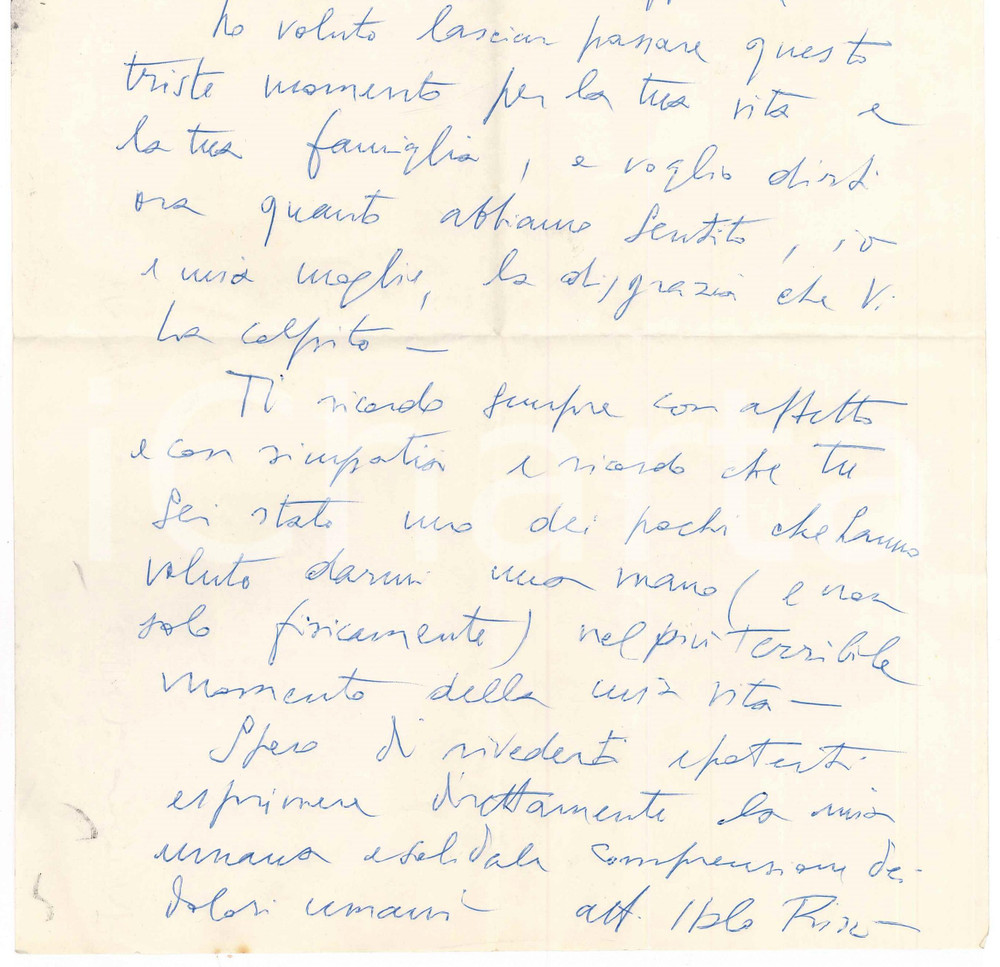 ho voluto lasciar passare questo
triste momento per la tua vita e
la tua famiglia, e voglio dirti
ora quanto abbiamo sentito, io
e mia moglie, la disgrazia che Vi
ha colpito —
Ti ricordo sempre con affetto
e con simpatia e ricordo che tu
sei stato uno dei pochi che hanno
voluto darmi una mano (e non
solo fisicamente) nel più terribile
momento della mia vita —
Spero di rivederti e poterti
esprimere direttamente la mia
umana e solidale comprensione dei
dolori umani aff. Italo
iCharta